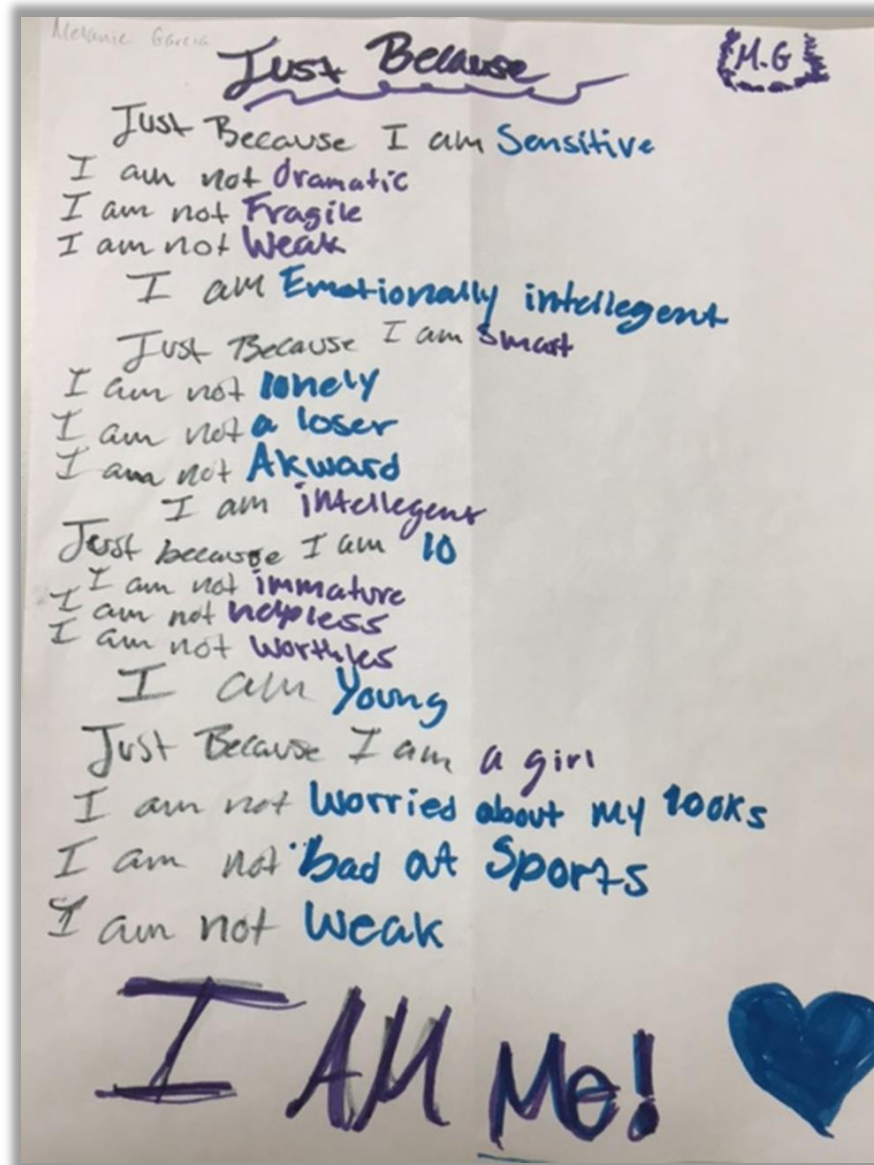 Melanie Garcia
Just Because
M.G
Just Because I am Sensitive
I am not dramatic
I am not Fragile
I am not Weak
I am Emotionally intellegent
Just Because I am Smart
I am not lonely
I am not a loser
I am not Akward
I am intellegent
Just because I am 10
I am not immature
I am not helpless
I am not worthles
I am Young
Just Because I am a girl
I am not Worried about my looks
I am not bad at Sports
I am not Weak
I AM Me!